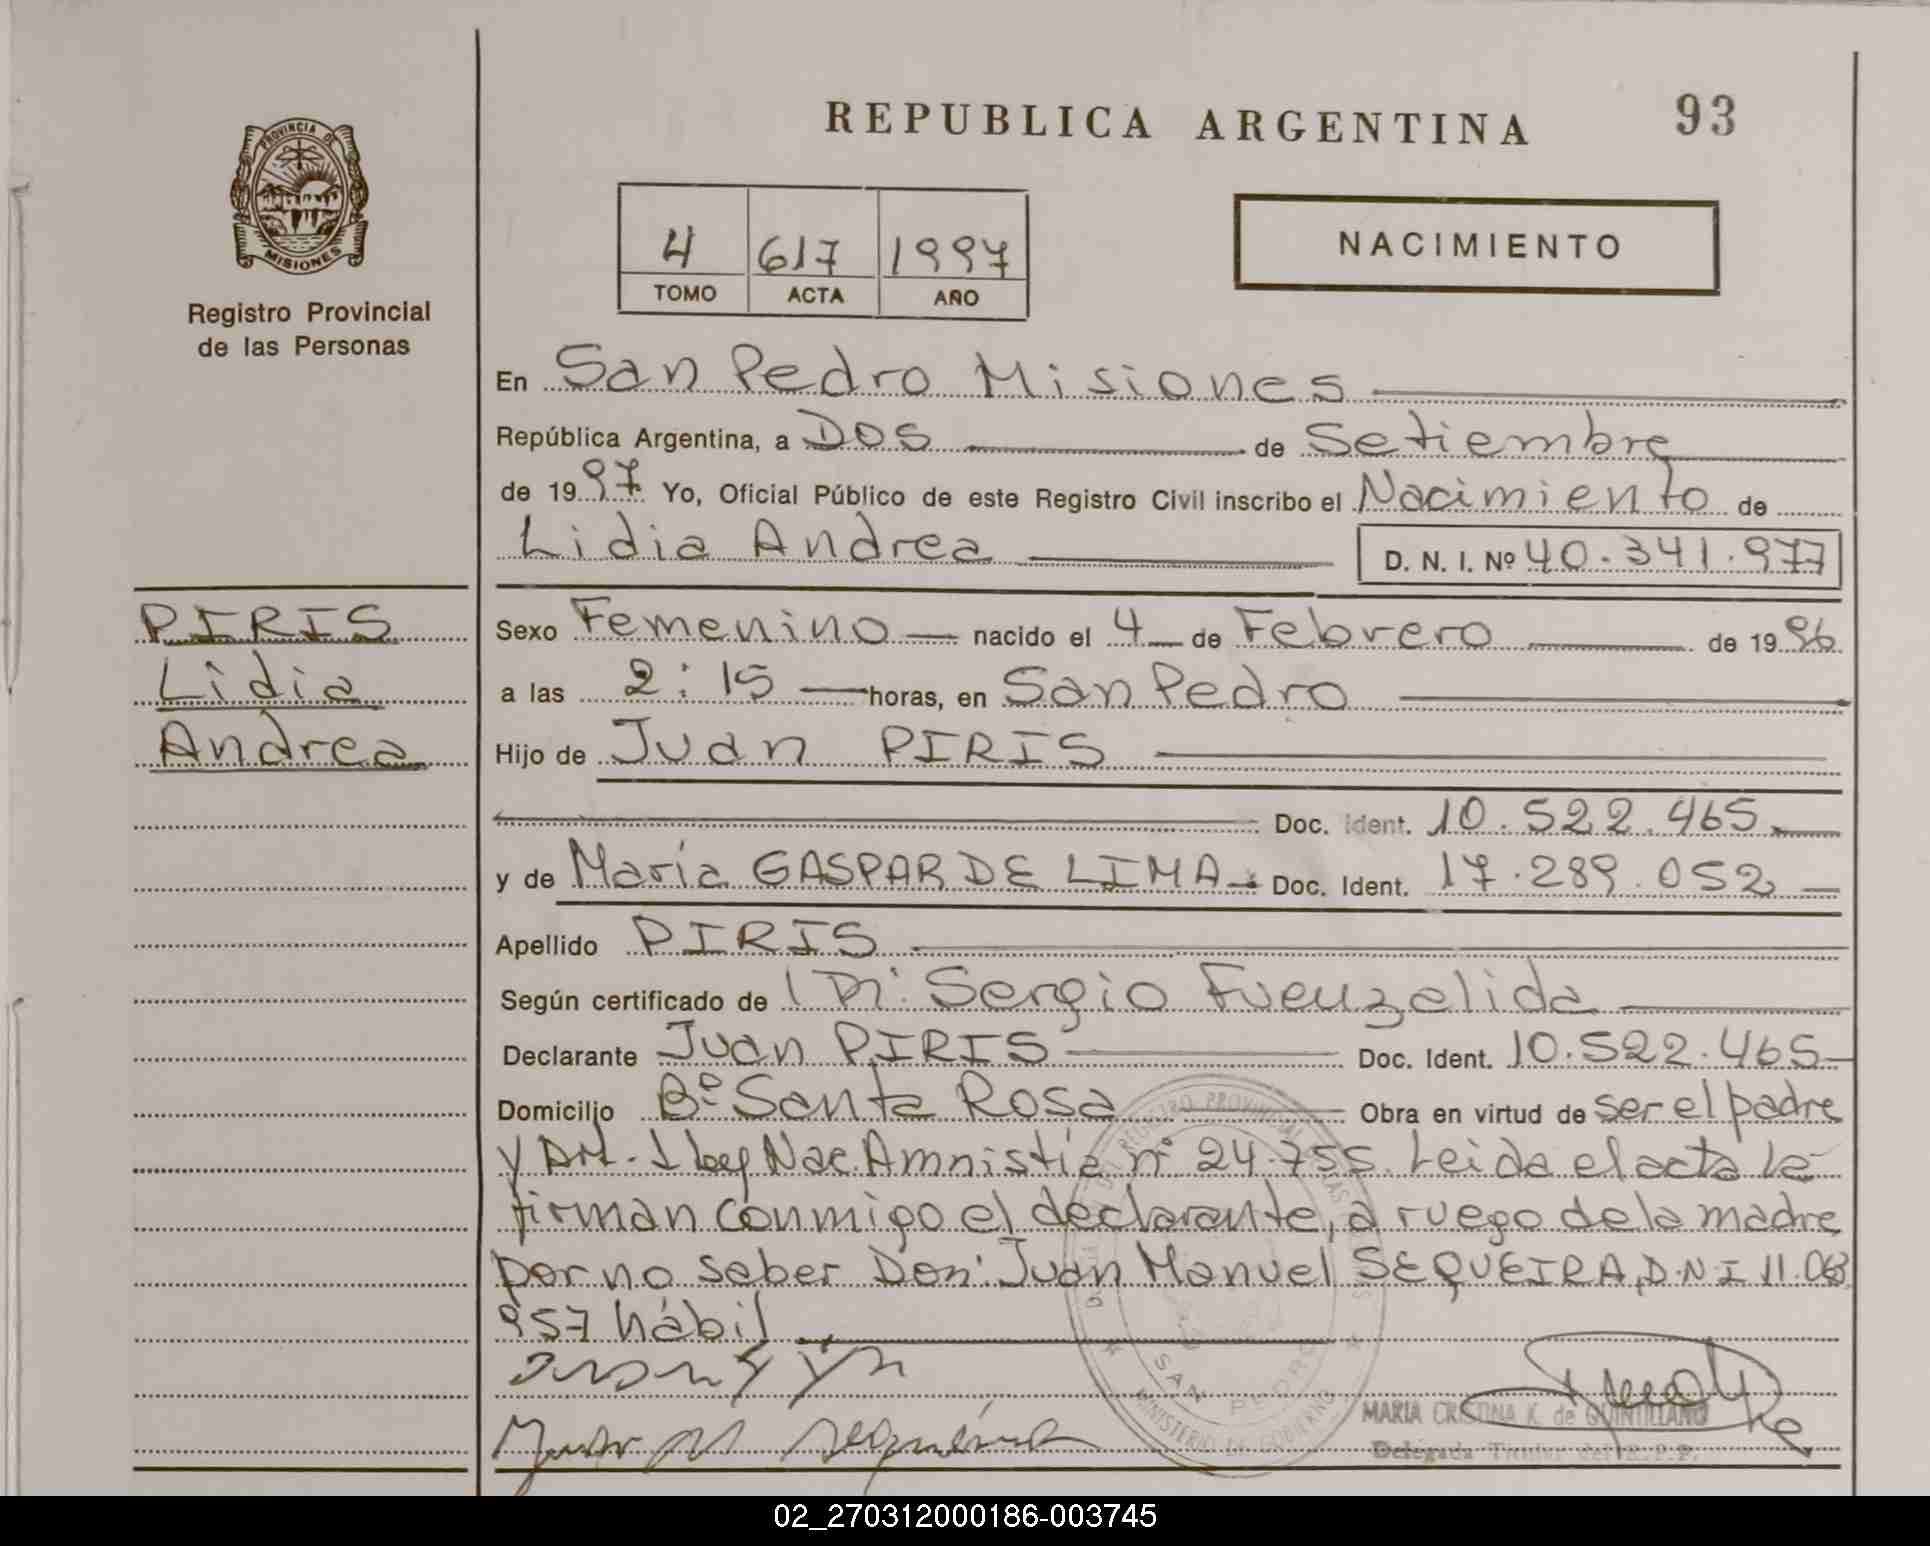 REPUBLICA ARGENTINA
93
PROVINCIA DE
MISIONES
Registro Provincial
de las Personas
4 617 1997
TOMO ACTA AÑO
NACIMIENTO
En San Pedro Misiones
República Argentina, a Dos de Setiembre
de 1997 Yo, Oficial Público de este Registro Civil inscribo el Nacimiento de
Lidia Andrea D. N. I. Nº 40.341.977
PIRIS
Lidia
Andrea
Sexo Femenino nacido el 4 de Febrero de 1996
a las 2:15 horas, en San Pedro
Hijo de Juan PIRIS
Doc. Ident. 10.522.465
y de María GASPAR DE LIMA Doc. Ident. 17.289.052
Apellido PIRIS
Según certificado de Dr. Sergio Fuenzalida
Declarante Juan PIRIS Doc. Ident. 10.522.465
Domicilio Bº Santa Rosa Obra en virtud de ser el padre
y Art. 1 ley Nac. Amnistía nº 24.755. Leida el acta la
firman conmigo el declarante, a ruego de la madre
por no saber Don: Juan Manuel SEQUEIRA, D.N.I 11.08
957 hábil
SAN PEDRO
MINISTERIO DE GOBIERNO
MARIA CRISTINA K. de QUINTILLANO
Delegada Titular del R.P.P.
02_270312000186-003745